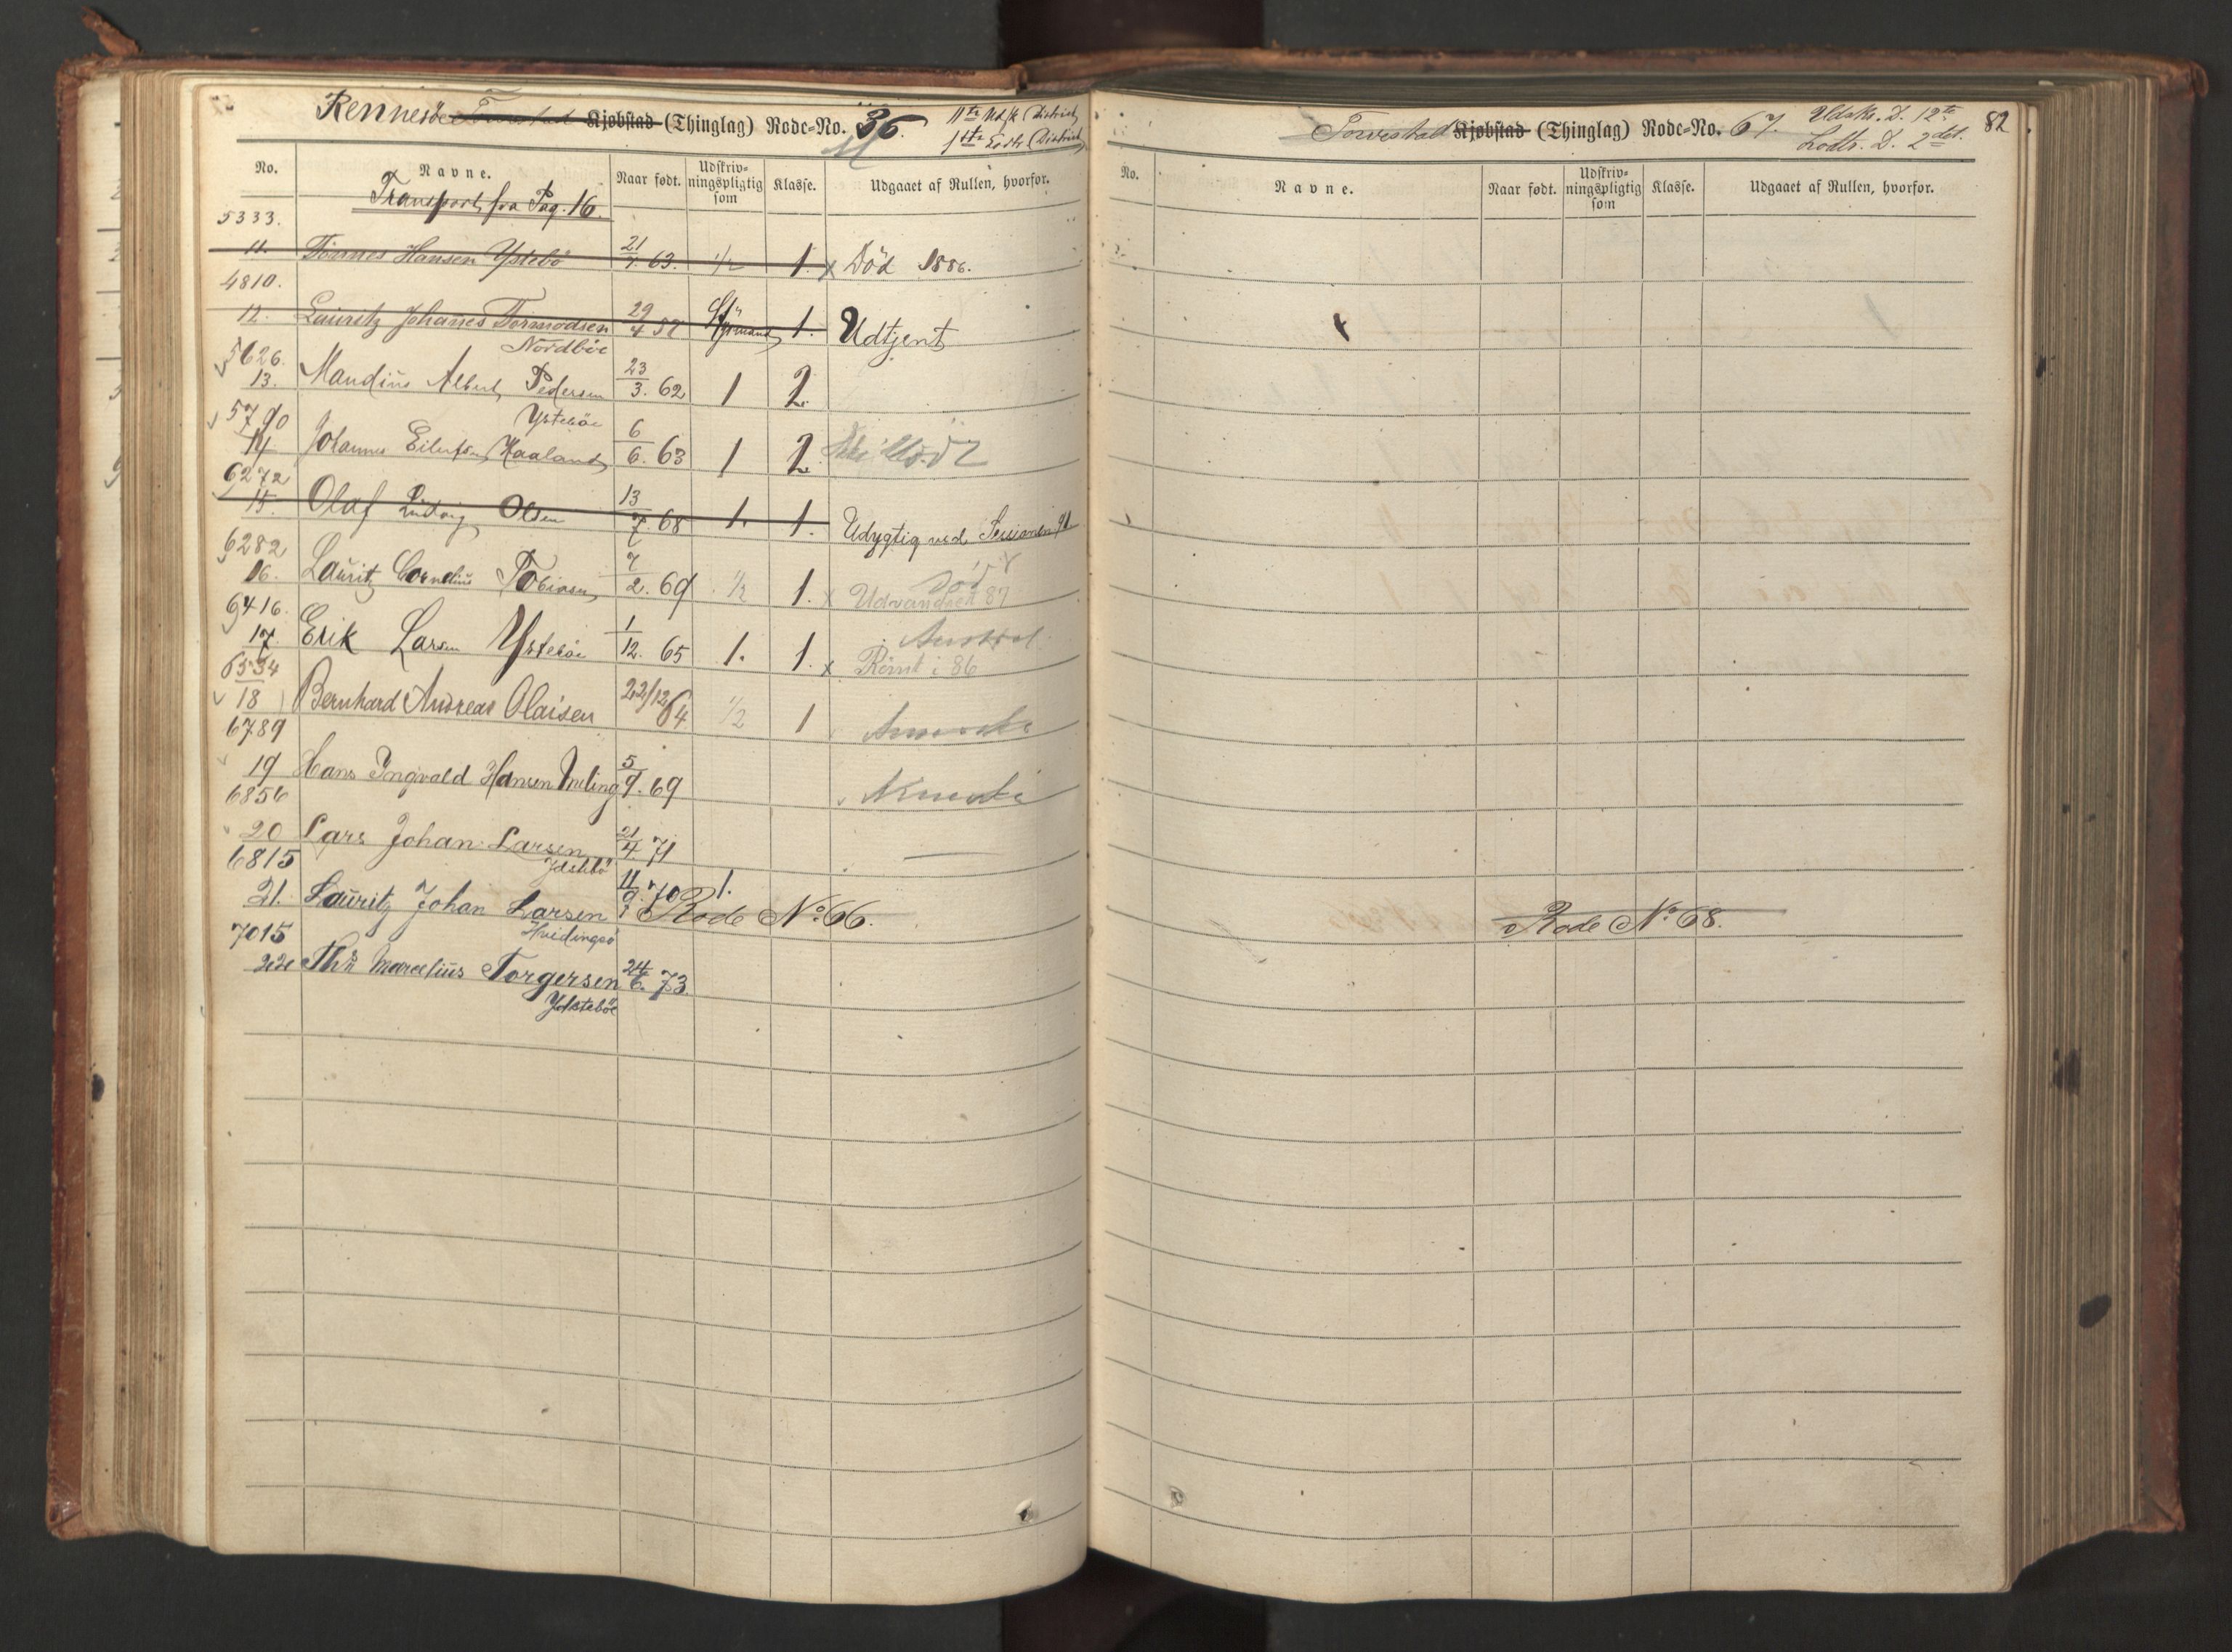 Rennesöe Torvestad Kjøbstad (Thinglag) Rode-No. 36. 11te Uds. District
1ste Lodts. District
No. Navne. Naar født. Udskriv-ningspligtig som Klasse. Udgaaet af Rullen, hvorfor.
Transport fra Pag. 16.
5333.
11. Hansen Ystebö 21/7. 63. 1/2 1. x Död 1886.
4810.
12. Lauritz Johanes Tormodsen 29/4 57 Styrmand 1. Udtjent
Nordböe
5626.
13. Maudius Albert Pedersen 23/3. 62 1 2.
Ysteböe
5790
14 Johannes Eilertsen Haaland 6/6. 63 1 2.
6272
15. Olaf Ludvig Olsen 13/7. 68 1. 1. Udygtig ved Sessionen 91
6282
16. Lauritz Cornelius Tobiasen 7/2. 69 1/2 1. x Udvandret 87
Död
6416.
17. Erik Larsen Ysteböe 1/12. 65 1. 1. x Römt i 86
6534
18 Bernhard Andreas Olaisen 22/12 64 1/2 1 Amerika
6789
19 Hans Ingvald Hansen Meling 5/9. 69 Amerika
6856
20 Lars Johan Larsen 21/4. 71
Idstebö
6815
21. Lauritz Johan Larsen 11/9. 70 1.
Hvidingsö
Rode No. 66.
7015
22 Ths Marcelius Torgersen 24/6. 73.
Ydsteböe
Torvestad Kjøbstad (Thinglag) Rode-No. 67. Udskr. D. 12te
Lodts. D. 2det.
82
No. Navne. Naar født. Udskriv-ningspligtig som Klasse. Udgaaet af Rullen, hvorfor.
Rode No 68.